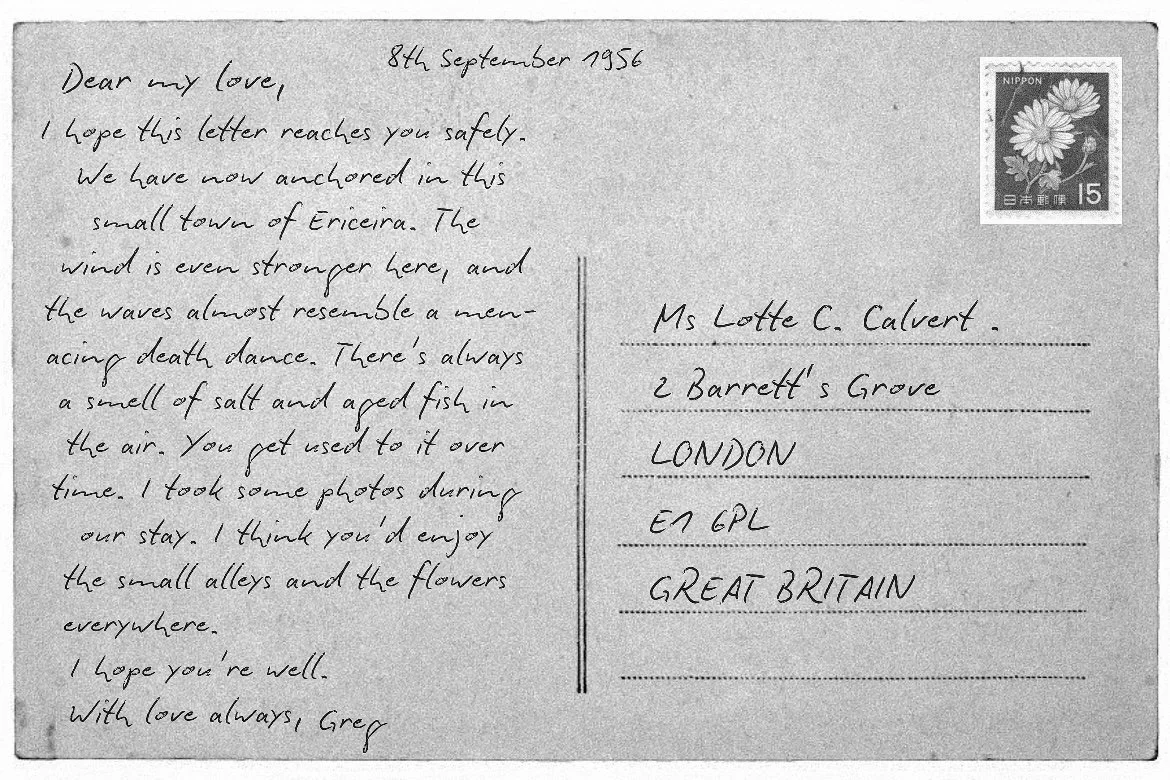 8th September 1956
Dear my love,
I hope this letter reaches you safely.
We have now anchored in this
small town of Ericeira. The
wind is even stronger here, and
the waves almost resemble a men-
acing death dance. There's always
a smell of salt and aged fish in
the air. You get used to it over
time. I took some photos during
our stay. I think you'd enjoy
the small alleys and the flowers
everywhere.
I hope you're well.
With love always, Greg
NIPPON
日本郵便 15
Ms Lotte C. Calvert.
2 Barrett's Grove
LONDON
E1 6PL
GREAT BRITAIN